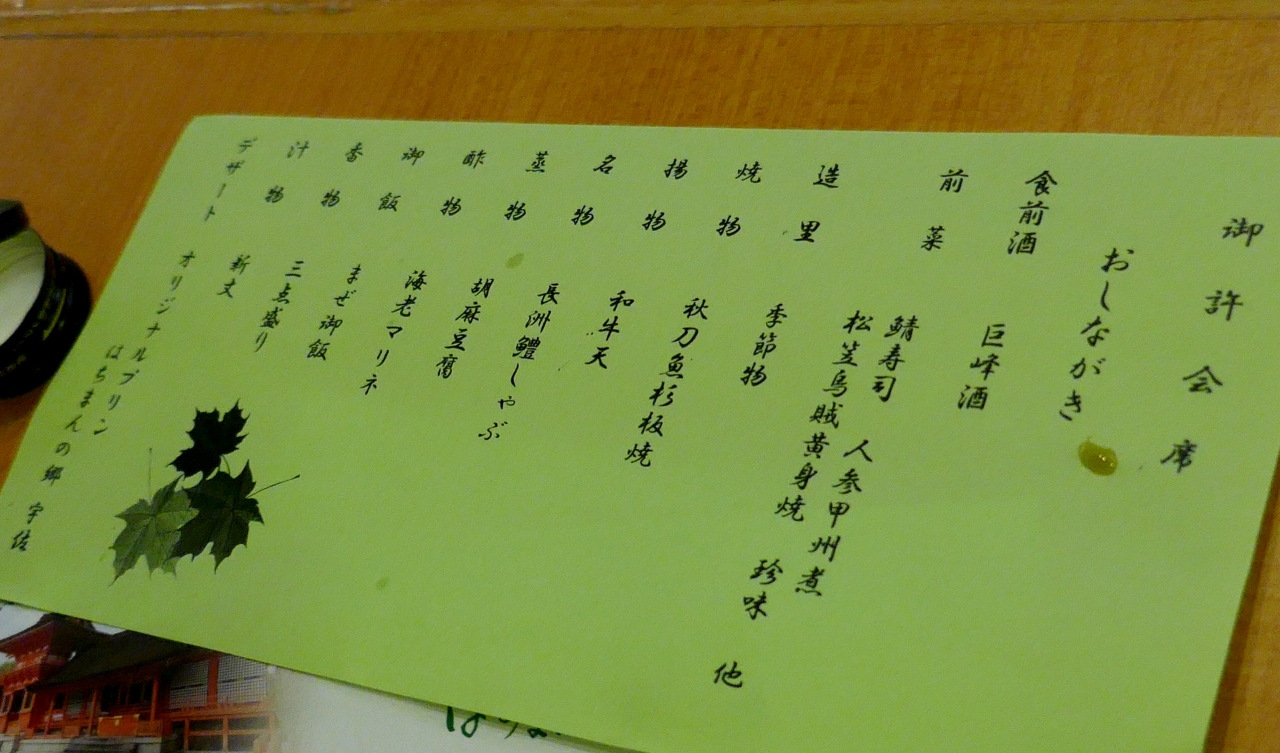 御許会席
おしながき
食前酒 巨峰酒
前菜 鯖寿司 人参甲州煮
松笠烏賊黄身焼 珍味 他
造里 季節物
焼物 秋刀魚杉板焼
揚物 和牛天
名物 長洲鱧しゃぶ
蒸物 胡麻豆腐
酢物 海老マリネ
御飯 まぜ御飯
香物 三点盛り
汁物 新丈
デザート オリジナルプリン
はちまんの郷 宇佐